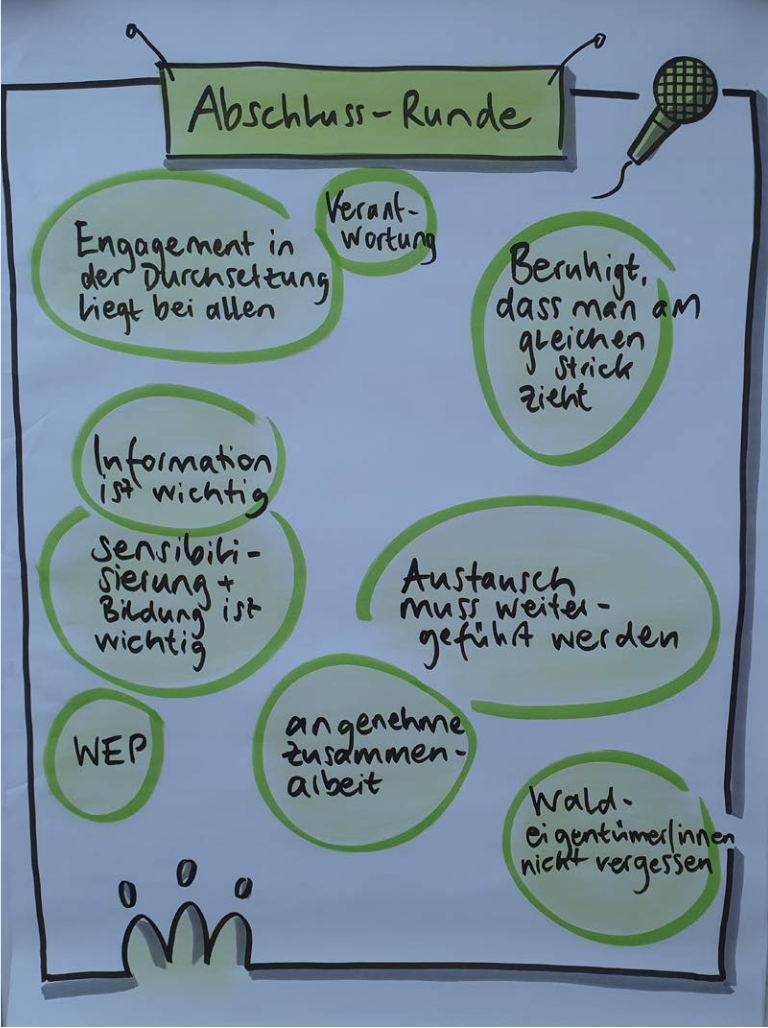 Abschluss-Runde
Engagement in
der Durchsetzung
liegt bei allen
Verant-
wortung
Beruhigt,
dass man am
gleichen
Strick
zieht
Information
ist wichtig
Sensibili-
sierung +
Bildung ist
wichtig
Austausch
muss weiter-
geführt werden
WEP
angenehme
Zusammen-
arbeit
Wald-
eigentümer/innen
nicht vergessen